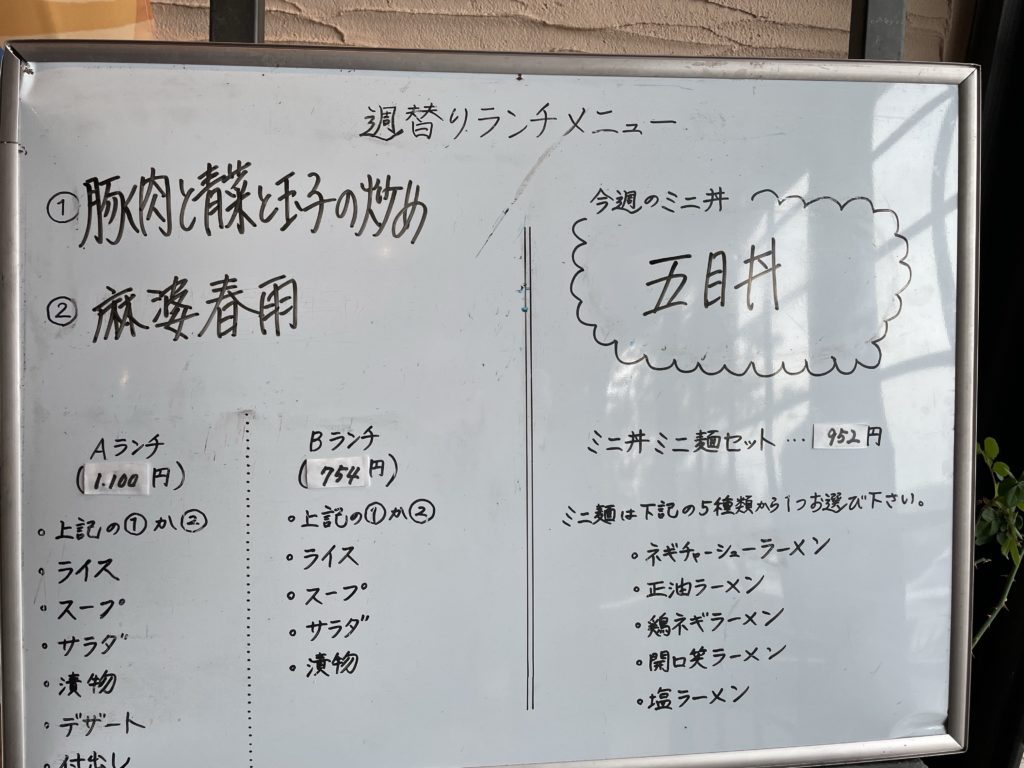 週替りランチメニュー
①豚肉と青菜と玉子の炒め
②麻婆春雨
Aランチ
(1.100円)
・上記の①か②
・ライス
・スープ
・サラダ
・漬物
・デザート
・付出し
Bランチ
(754円)
・上記の①か②
・ライス
・スープ
・サラダ
・漬物
今週のミニ丼
五目丼
ミニ丼ミニ麺セット…952円
ミニ麺は下記の5種類から1つお選び下さい。
・ネギチャーシューラーメン
・正油ラーメン
・鶏ネギラーメン
・開口笑ラーメン
・塩ラーメン